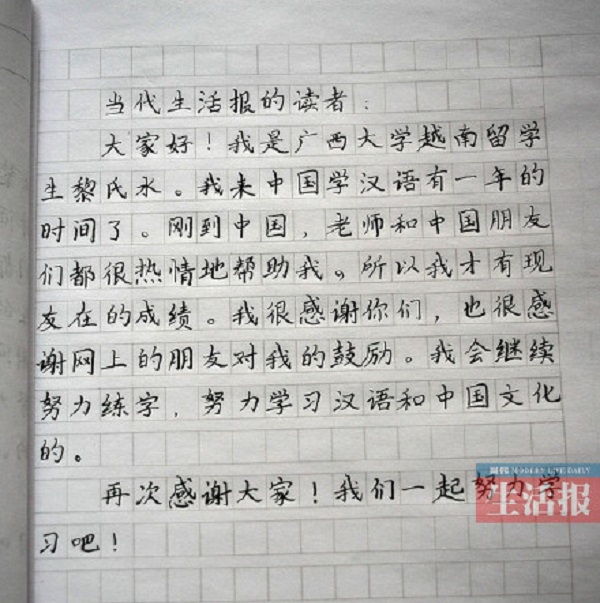 当代生活报的读者：
大家好！我是广西大学越南留学
生黎氏水。我来中国学汉语有一年的
时间了。刚到中国，老师和中国朋友
们都很热情地帮助我。所以我才有现
友在的成绩。我很感谢你们，也很感
谢网上的朋友对我的鼓励。我会继续
努力练字，努力学习汉语和中国文化
的。
再次感谢大家！我们一起努力学
习吧！
當代 MODERN LIFE DAILY
生活报